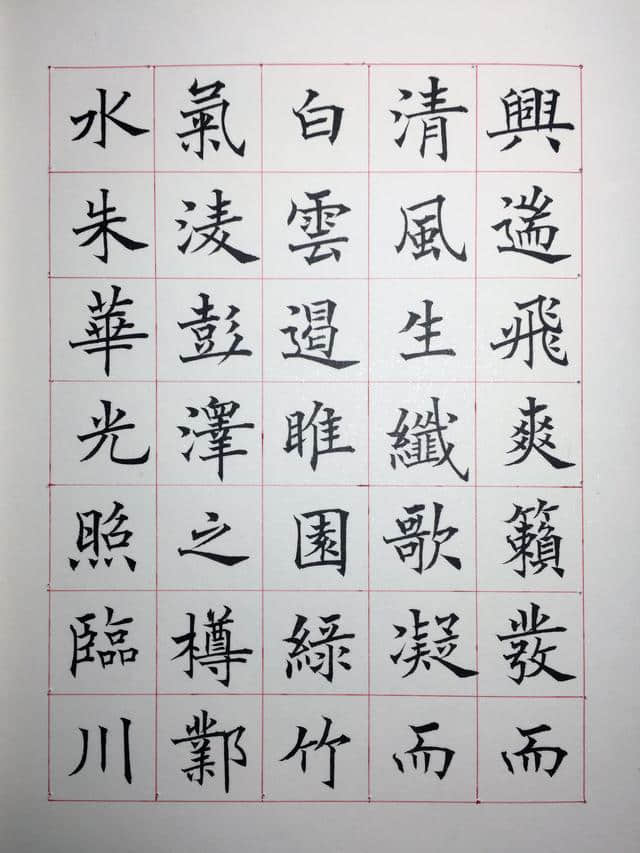 興遄飛爽籟發而
清風生纖歌凝而
白雲遏睢園綠竹
氣淩彭澤之樽鄴
水朱華光照臨川